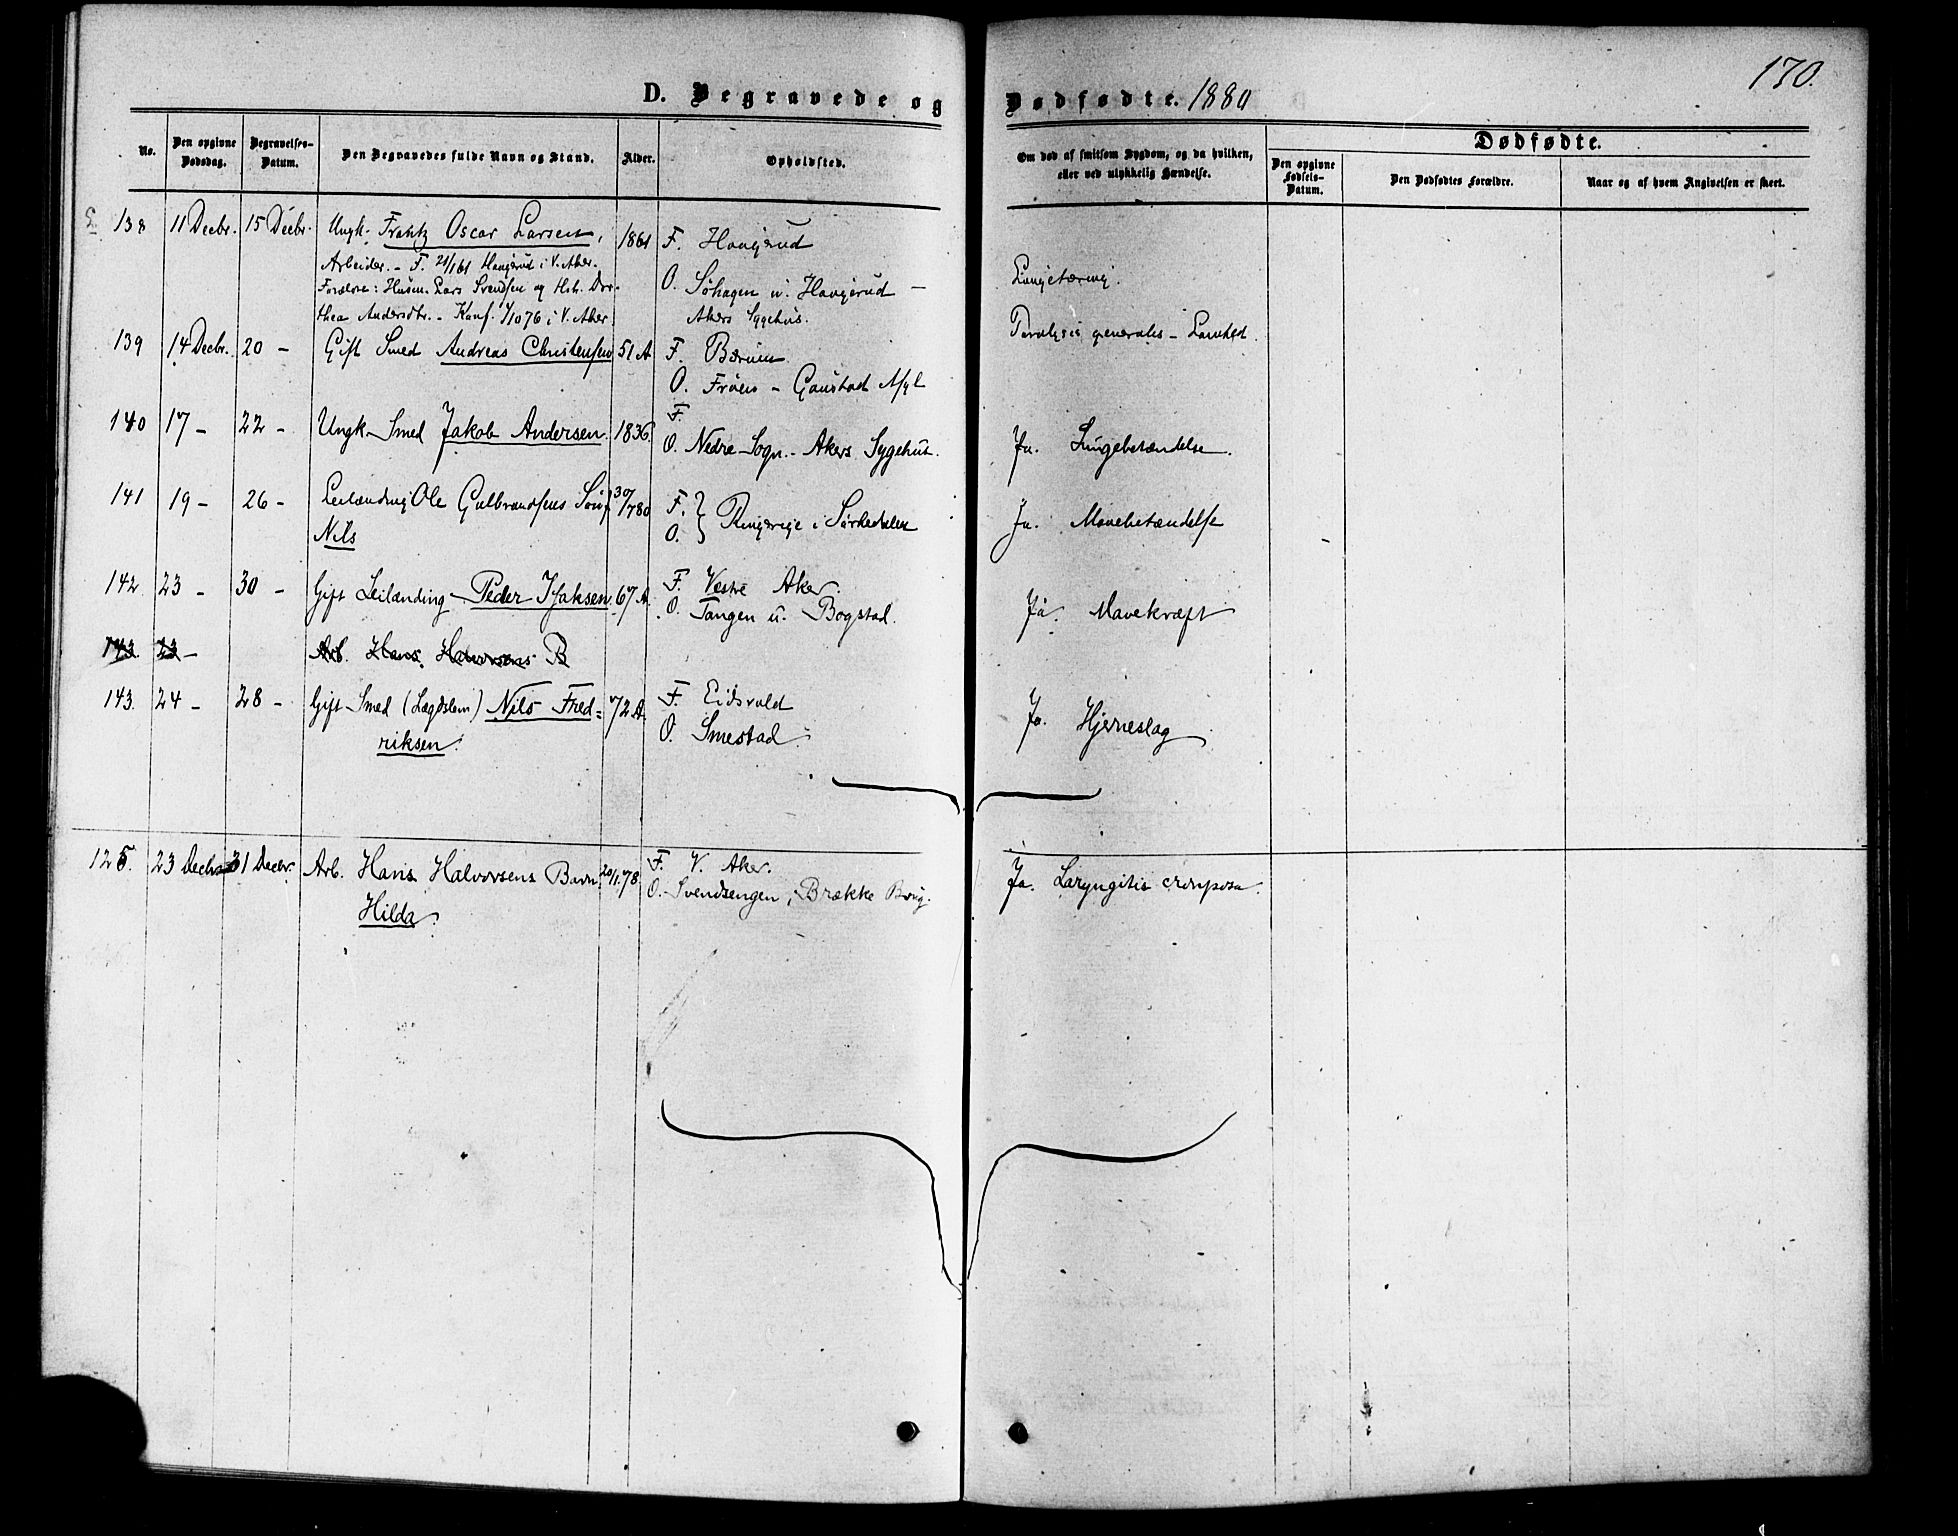 170.
D. Begravede og Dødfødte. 1880
Dødfødte.
No.
Den opgivne Dødsdag.
Begravelses-Datum.
Den Begravedes fulde Navn og Stand.
Alder.
Opholdsted.
Om død af smitsom Sygdom, og da hvilken, eller ved ulykkelig Hændelse.
Den opgivne Fødsels-Datum.
Den Dødfødtes Forældre.
Naar og af hvem Angivelsen er skeet.
138 11 Decbr. 15 Decbr. Ungk. Frantz Oscar Larsen, 1861 F. Hovgerud
Arbeider. - F. 21/1 61 Hovgerud i V. Aker.
Forældre: Husm. Lars Svendsen og Hst. Dor-
thea Andersdtr. - Konf. 1/10 76 i V. Aker
O. Søhagen u. Hovgerud -
Akers Sygehus.
Lungetæring.
139 14 Decbr. 20 - Gift Smed Andreas Christensen 51 A F. Bærum
O. Frøen - Gaustad Asyl
Paralysis generalis - Lamhed.
140 17 - 22 - Ungk. Smed Jakob Andersen. 1836. F.
O. Nedre Sogn. - Akers Sygehus.
Ja. Lungebetændelse.
141 19 - 26 - Leilænding Ole Gulbrandsens Søn 30/7 80 F. } Ringerige i Sørkedalen
Nils
O.
Ja. Mavebetændelse
142 23 - 30 - Gift Leilænding Peder Isaksen 67 A. F. Vestre Aker.
O. Tangen u. Bogstad.
Ja. Mavekræft
143. 23 - Arb. Hans Halvorsens B
143. 24 - 28 - Gift Smed (Lægdslem) Nils Fred= 72 A. F. Eidsvold
riksen.
O. Smestad
Ja. Hjerneslag
125. 23 Decbr. 31 Decbr. Arb. Hans Halvorsens Barn 20/1 78. F. V. Aker.
Hilda
O. Svendsengen, Brække Brug.
Ja. Laryngitis crouposa.